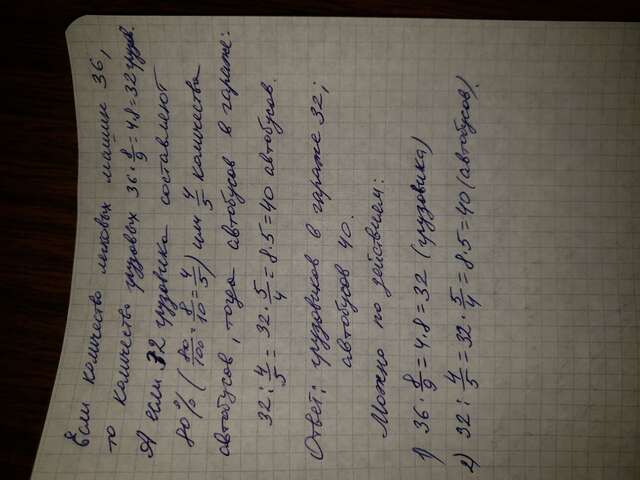 Если количество легковых машин 36,
то количество грузовых 36 · 8/9 = 4 · 8 = 32 грузов.
А если 32 грузовика составляют
80% (80/100 = 8/10 = 4/5) или 4/5 количества
автобусов, тогда автобусов в гараже:
32 : 4/5 = 32 · 5/4 = 8 · 5 = 40 автобусов.
Ответ: грузовиков в гараже 32;
автобусов 40.
Можно по действиям:
1) 36 · 8/9 = 4 · 8 = 32 (грузовика)
2) 32 : 4/5 = 32 · 5/4 = 8 · 5 = 40 (автобусов).